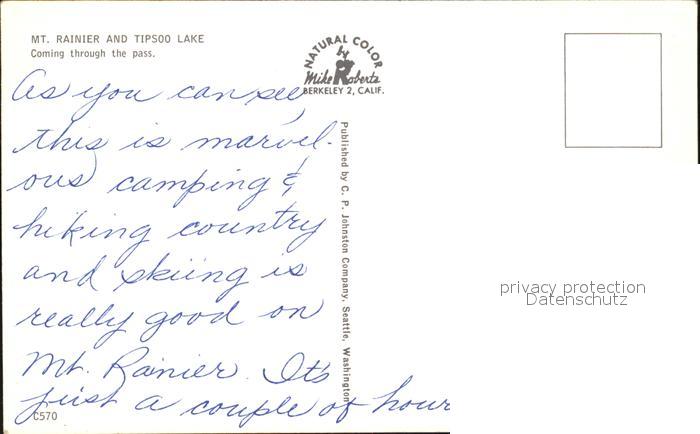 MT. RAINIER AND TIPSOO LAKE
Coming through the pass.
NATURAL COLOR
by
Mike Roberts
BERKELEY 2, CALIF.
As you can see,
this is marvel-
ous camping &
hiking country
and skiing is
really good on
Mt. Rainier. It's
just a couple of hour
C570
Published by C. P. Johnston Company, Seattle, Washington
privacy protection
Datenschutz